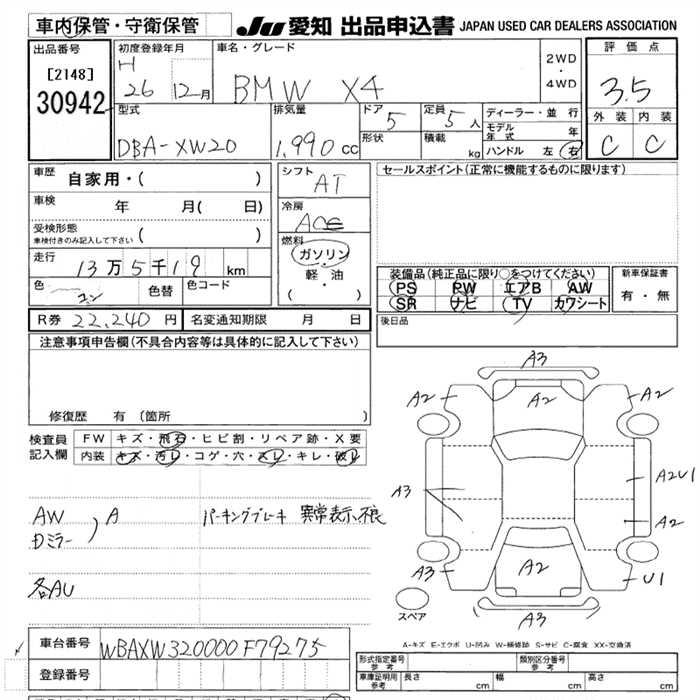 車内保管・守衛保管
JU 愛知 出品申込書 JAPAN USED CAR DEALERS ASSOCIATION
出品番号
[2148]
30942
初度登録年月
H
26 12月
車名・グレード
BMW X4
2WD
・
4WD
評価点
3.5
外装 内装
C C
型式
DBA-XW20
排気量
1,990 cc
ドア 5
形状
定員 5 人
積載 kg
ディーラー・並行
モデル年式 年
ハンドル 左 右
車歴 自家用・( )
車検 年 月( 日)
受検形態
車検付きのみ記入して下さい ( )
走行 13万5千19 km
色
コン
色替
色コード
シフト
AT
冷房
燃料
ガソリン
・
軽・油
( ・ )
セールスポイント(正常に機能するものに限ります)
装備品(純正品に限り○をつけてください)
PS PW エアB AW
SR ナビ TV カワシート
新車保証書
有・無
後日品
R券 22,240 円
名変通知期限 月 日
注意事項申告欄(不具合内容等は具体的に記入して下さい)
修復歴 有(箇所 )
検査員
記入欄
FW キズ・飛石・ヒビ割・リペア跡・X要
内装 キズ・汚レ・コゲ・穴・スレ・キレ・破レ
AW
Dミラー
A
パーキングブレーキ 異常表示、不良
各AU
A3
A2 A2 A2
A3
A2U1
A2
A3 A2 U1
A3
スペア
A-キズ E-エクボ U-凹み W-補修跡 S-サビ C-腐食 XX-交換済
車台番号 WBAXW320000F79275
登録番号
形式指定番号
参考
類別区分番号
参考
車庫証明用
参考
長さ cm 幅 cm 高さ cm